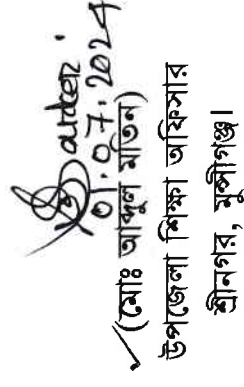 01.07.2024
(মোঃ আব্দুল মতিন)
উপজেলা শিক্ষা অফিসার
শ্রীনগর, মুন্সীগঞ্জ।